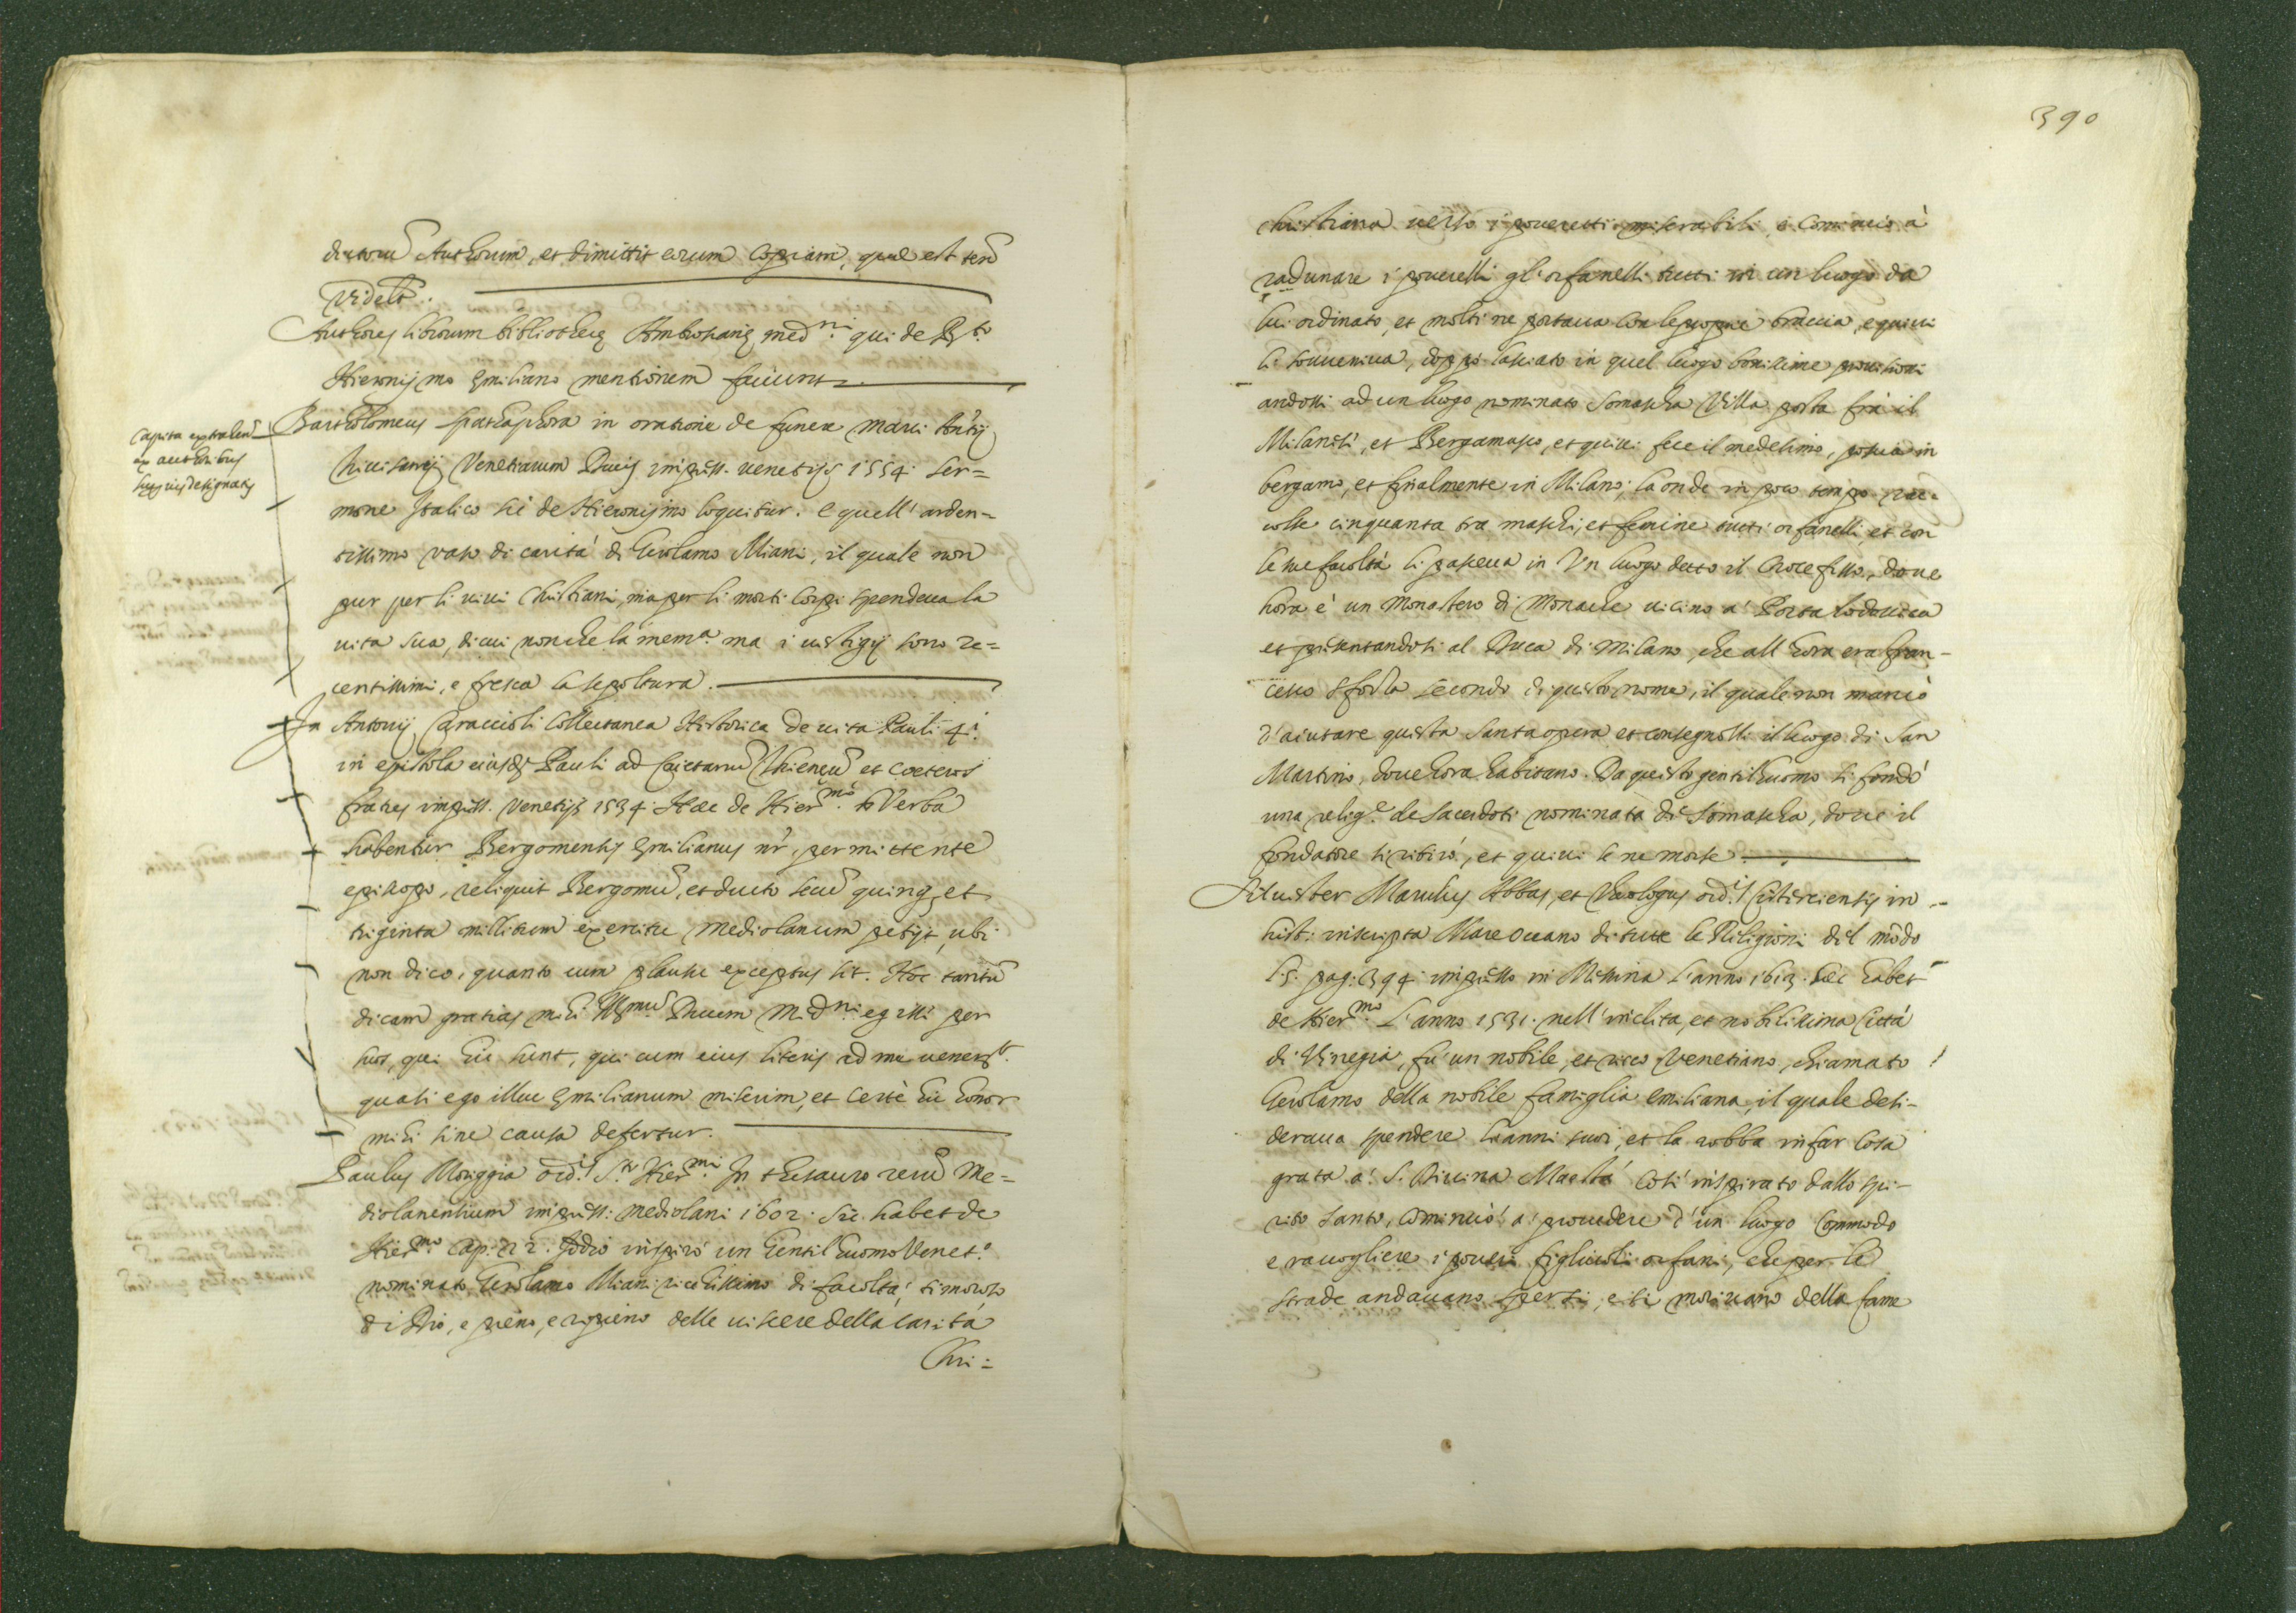 dictorum Authorum, et dimittit eorum copiam, quae est ten.
videlt.
Authores librorum bibliothecę Ambrosianę med.ni qui de B.to
Hieronijmo Emiliano mentionem faciunt.
Capita extracta
ex authoribus
huc designatis
Bartholomeus Spathaphora in oratione de funere Marci Antij
Trivisanij Venetiarum Ducis impress. venetijs 1554. ser=
mone Italico sic de Hieronijmo loquitur. E quell' arden=
tissimo vaso di carità di Gerolamo Miani, il quale non
pur per li vivi Christiani, ma per li morti corpi spendeva la
vita sua, di cui non che la mem.a ma i vestigij sono re=
centissimi, e fresca la sepoltura.
In Antonij Caraccioli Collectanea Historica de vita Pauli 4.i
in epistola eiusd. Pauli ad Caietanū Thieneū et coeteros
fratres impress. Venetijs 1534. Haec de Hier.mo verba
habentur. Bergomensis Emilianus nr. permittente
episcopo, reliquit Bergomū, et ducto secū quinq. et
triginta militum exercitu Mediolanum petijt, ubi
non dico, quanto cum plausu exceptus sit. Hoc tantū
dicam gratias mihi Ill.mū Ducem Med.ni egisse per
hos, qui hic sunt, qui cum eius literis ad me venerūt
quasi ego illuc Emilianum miserim, et certè hic honor
mihi sine causa defertur.
Paulus Moriggia ord.s S.ti Hier.mi In thesauro rerū Me=
diolanensium impress. mediolani 1602. sic habet de
Hier.mo Cap. 22. Iddio inspirò un Gentil'huomo Venet.o
nominato Gerolamo Miani ricchissimo di facoltà, timoroso
di Dio, e pieno, e ripieno delle viscere della carità
Chri=
390
christiana verso i poveretti miserabili, e cominciò à
radunare i poverelli gl'orfanelli tutti in un luogo da
lui ordinato, et molti ne portava con le proprie braccia, e quivi
li souueniua, doppo lasciato in quel luogo bonissime provisioni
andossi ad un luogo nominato Somascha Villa posta frà il
Milanesi, et Bergamasco, et quivi fece il medesimo, poscia in
bergamo, et finalmente in Milano, la onde in poco tempo rac=
colse cinquanta tra maschi, et femine tutti orfanelli, et con
le sue facoltà li pasceva in Un luogo detto il Crocefisso, dove
hora è un Monastero di Monache vicino a Porta Lodovica
et presentandosi al Duca di Milano, che all'hora era fran-
cesco Sforza secondo di questo nome, il quale non mancò
d'aiutare questa santa opera et consegnolli il luogo di San
Martino, dove hora habitano. Da questo gentilhuomo si fondò
una relig.e de sacerdoti nominata di Somascha, dove il
fondatore si ritirò, et quivi se ne morse.
Silvester Maruleus Abbas, et theologus ord.s Cisterciensis in
hist. inscripta Mare Oceano di tutte le Religioni del mōdo
l. 5. pag. 394. impresso in Messina l'anno 1613. sic habet
de Hier.mo L'anno 1531. nell'inclita, et nobilissima Città
di Vinegia, fu un nobile, et ricco Venetiano, chiamato
Gerolamo della nobile famiglia Emiliana, il quale desi-
derava spendere li anni suoi, et la robba in far cosa
grata a S. Divina Maestà così inspirato dallo spi-
rito santo, cominciò a provedere d'un luogo commodo
e raccogliere i poveri figliuoli orfani, che per le
strade andavano spersi, e si morivano della fame